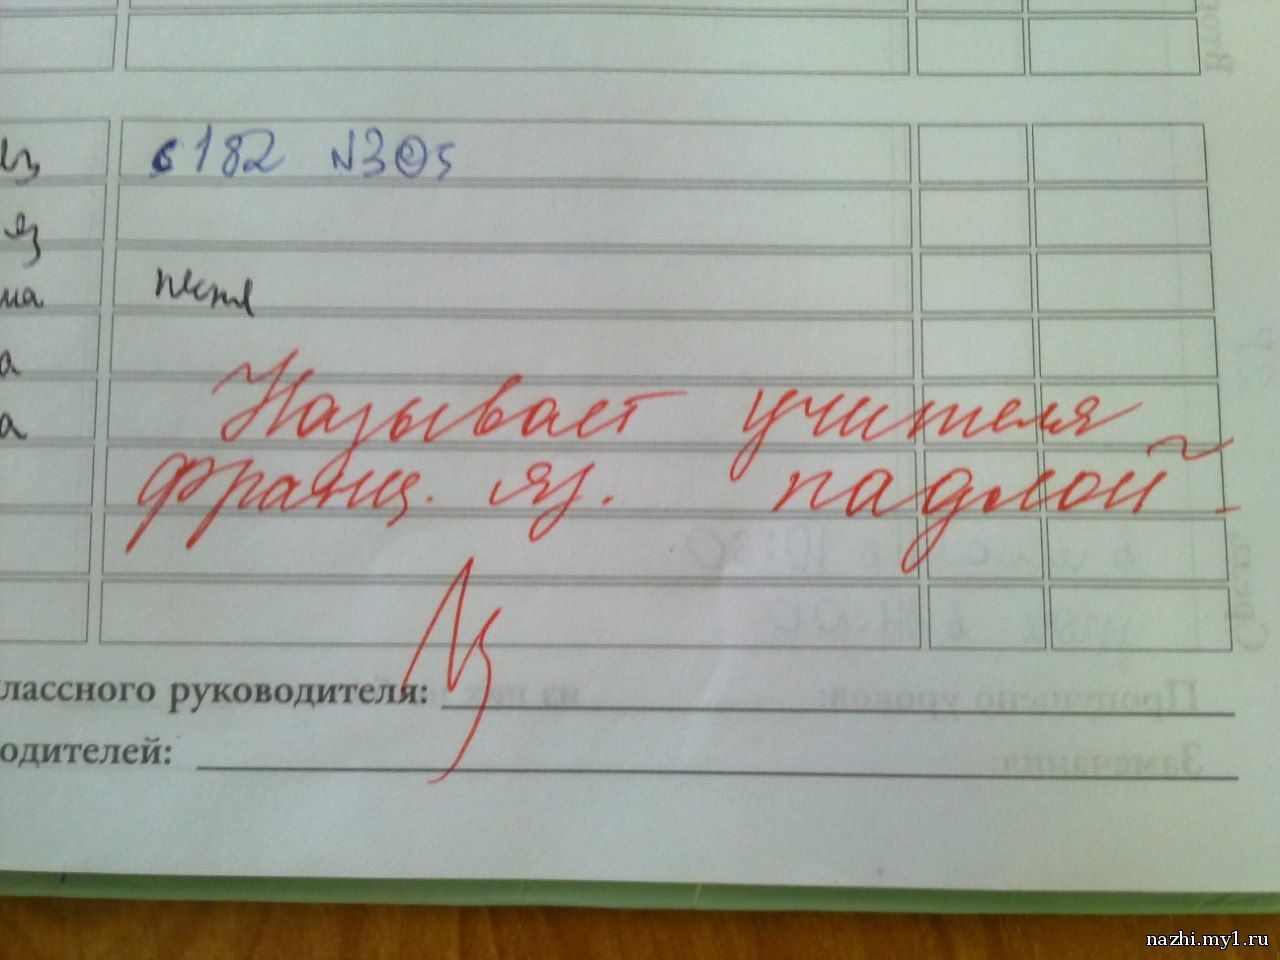 с 182 №305
песня
Называет учителя
франц. яз. падлой.
лассного руководителя:
одителей:
nazhi.my1.ru